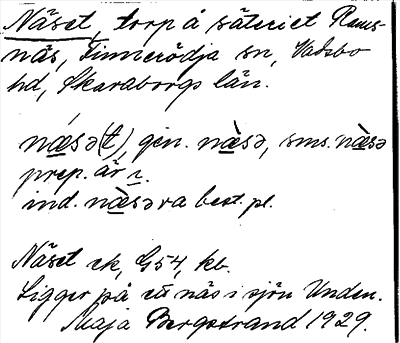 Näset, torp å säteriet Rams-
näs, Tinnerödja sn, Vadsbo
hd, Skaraborgs län.
næ̀sə(t), gen. næ̀sə, sms. næ̀sə
prep. är ı.
ind. næ̀səra best. pl.
Näset ek, G54, kb.
Ligger på ett näs i sjön Unden.
Maja Bergstrand 1929.